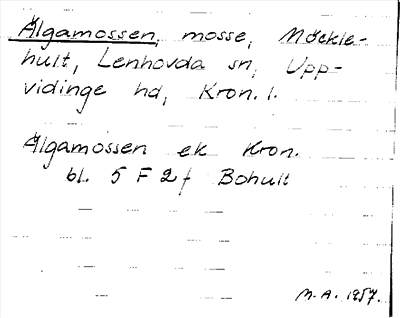 Älgamossen, mosse, Möckle-
hult, Lenhovda sn, Upp-
vidinge hd, Kron. l.
Älgamossen ek Kron.
bl. 5 F 2 f Bohult
M.A. 1957.